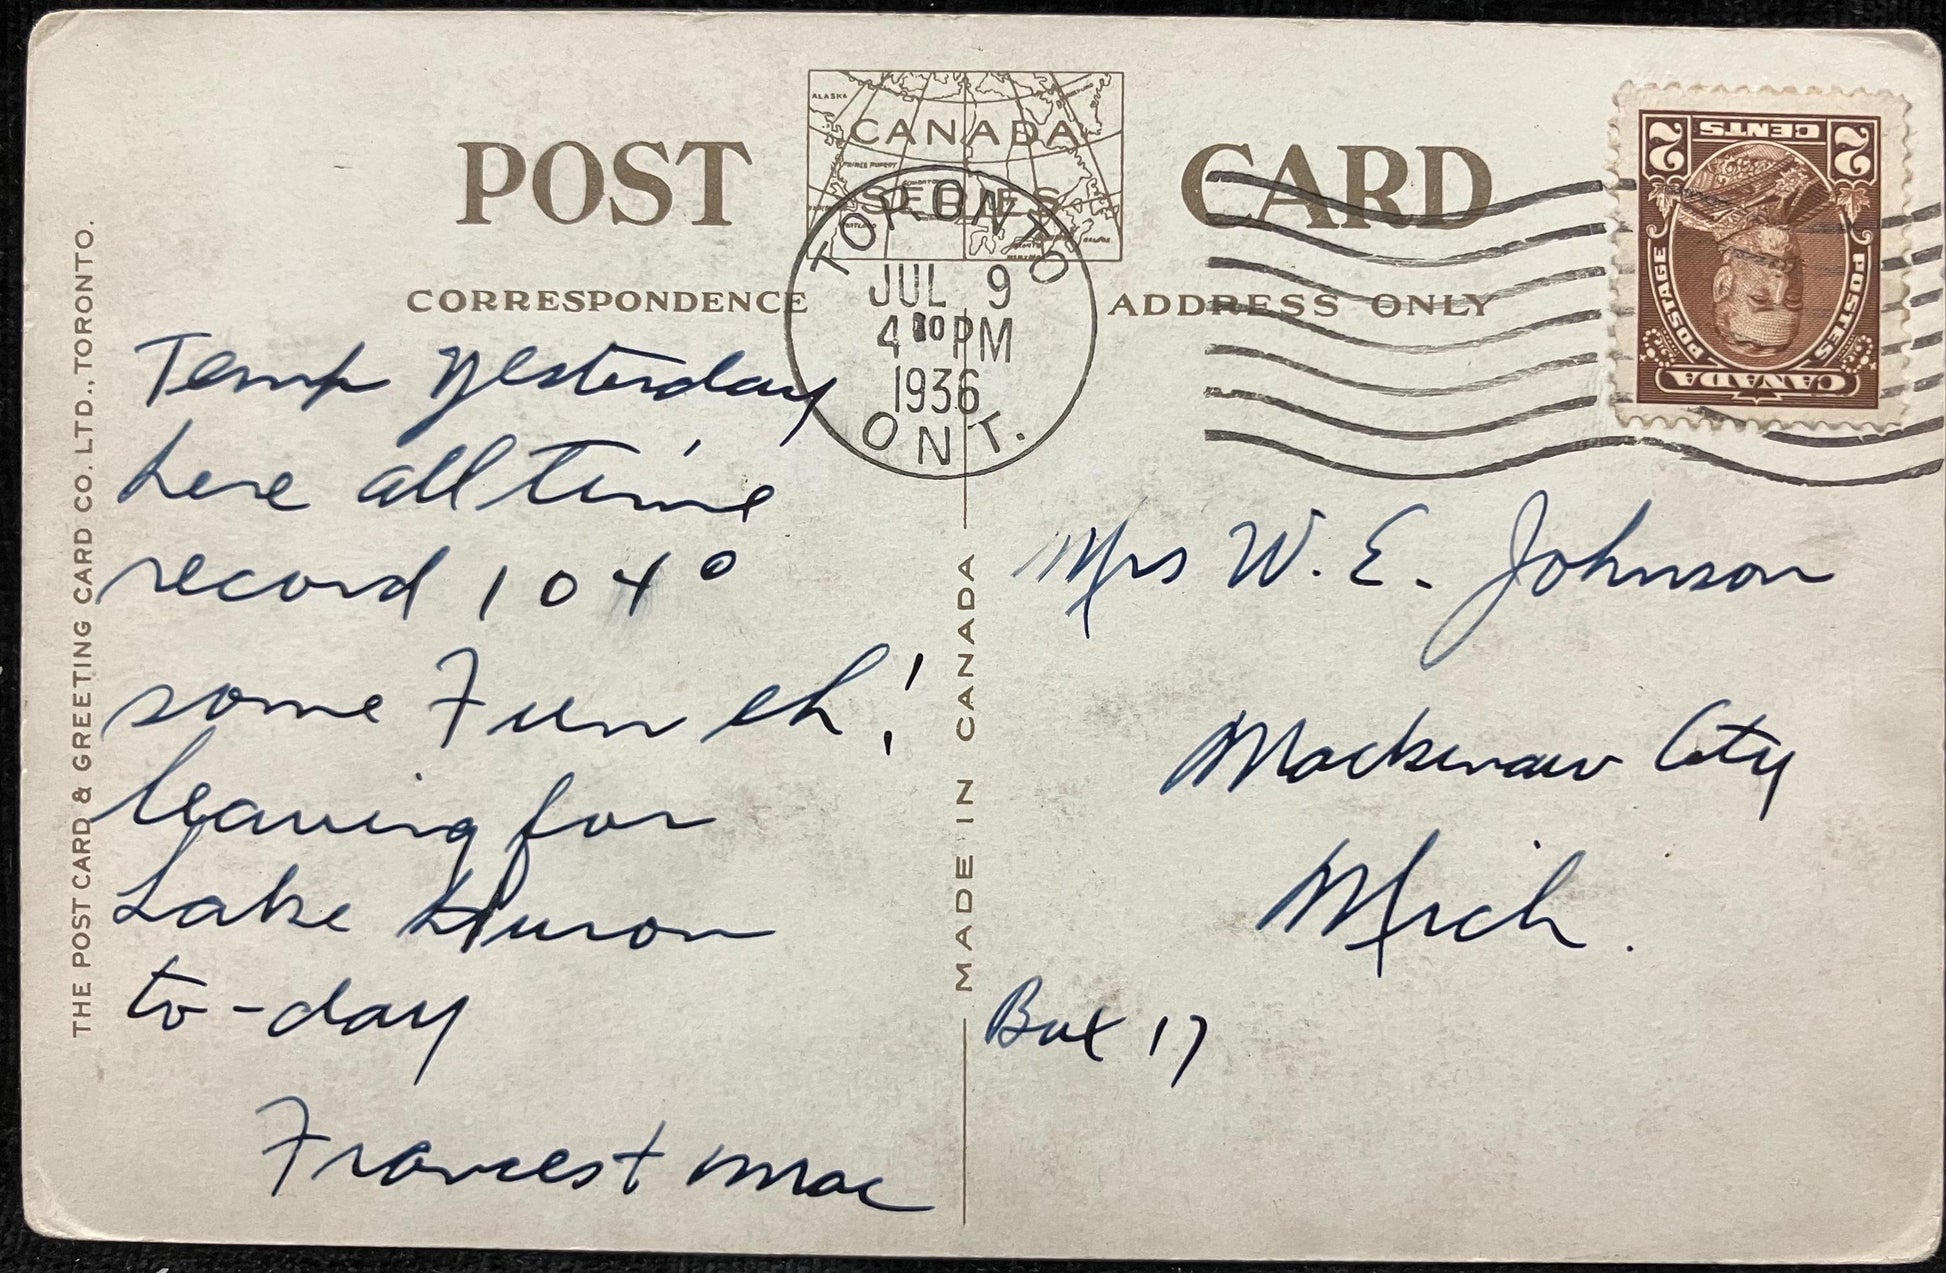 POST CARD
CANADA
SERIES
ALASKA
PRINCE RUPERT
CORRESPONDENCE
ADDRESS ONLY
TORONTO
JUL 9
4 30 PM
1936
ONT.
2 CENTS 2
POSTES POSTAGE
CANADA
THE POST CARD & GREETING CARD CO. LTD., TORONTO.
MADE IN CANADA
Temp Yesterday
here all time
record 104°
some Fun eh!
leaving for
Lake Huron
to-day
Frances + Mac
Mrs W. E. Johnson
Mackinaw City
Mich.
Box 17